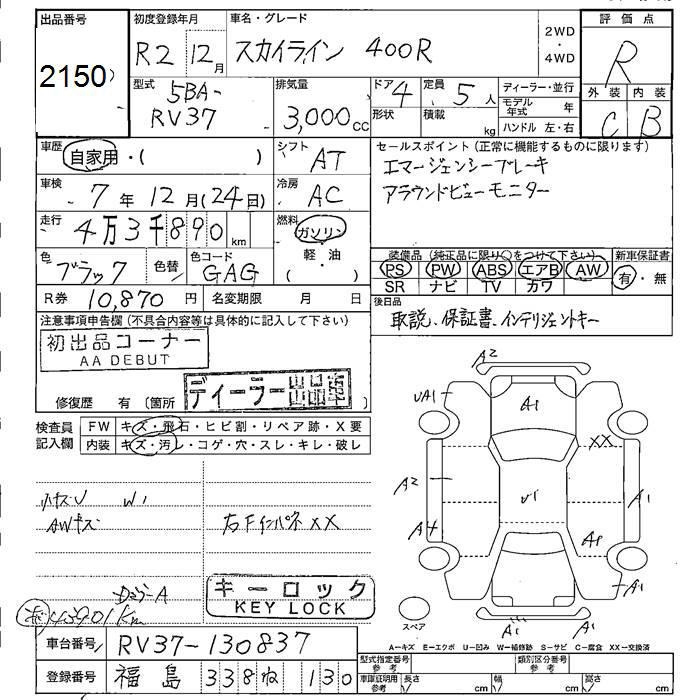 出品番号 初度登録年月 車名・グレード 2WD 評価点
2150 R2 12月 スカイライン 400R ・ R
4WD
型式 排気量 ドア 定員 ディーラー・並行 外装 内装
5BA- RV37 3,000cc 4 5人 モデル年式 年 C B
形状 積載 kg ハンドル 左・右
車歴 自家用・( ) シフト AT セールスポイント(正常に機能するものに限ります)
エマージェンシーブレーキ
車検 7年12月(24日) 冷房 AC アラウンドビューモニター
走行 4万3千890km 燃料 ガソリン
軽・油
( )
色 ブラック 色替 色コード GAG 装備品(純正品に限り○をつけて下さい) 新車保証書
PS PW ABS エアB AW 有・無
SR ナビ TV カワ
R券 10,870円 名変期限 月 日 後日品
取説、保証書、インテリジェントキー
注意事項申告欄(不具合内容等は具体的に記入して下さい)
初出品コーナー
AA DEBUT
ディーラー出品車
修復歴 有(箇所
検査員記入欄 FW キズ・飛石・ヒビ割・リペア跡・X要
内装 キズ・汚レ・コゲ・穴・スレ・キレ・破レ
小キズU W1
AWキズ 右Fインパネ XX
キーロック
KEY LOCK
43901km
A2
UA1 A1
XX
A2 U1 A1
A1
A1
A1
スペア
A1
A-キズ E-エクボ U-凹み W-補修跡 S-サビ C-腐食 XX-交換済
車台番号 RV37-130837
型式指定番号 参考 類別区分番号 参考
登録番号 福島 338 ね 130
車庫証明用 参考 長さ cm 幅 cm 高さ cm